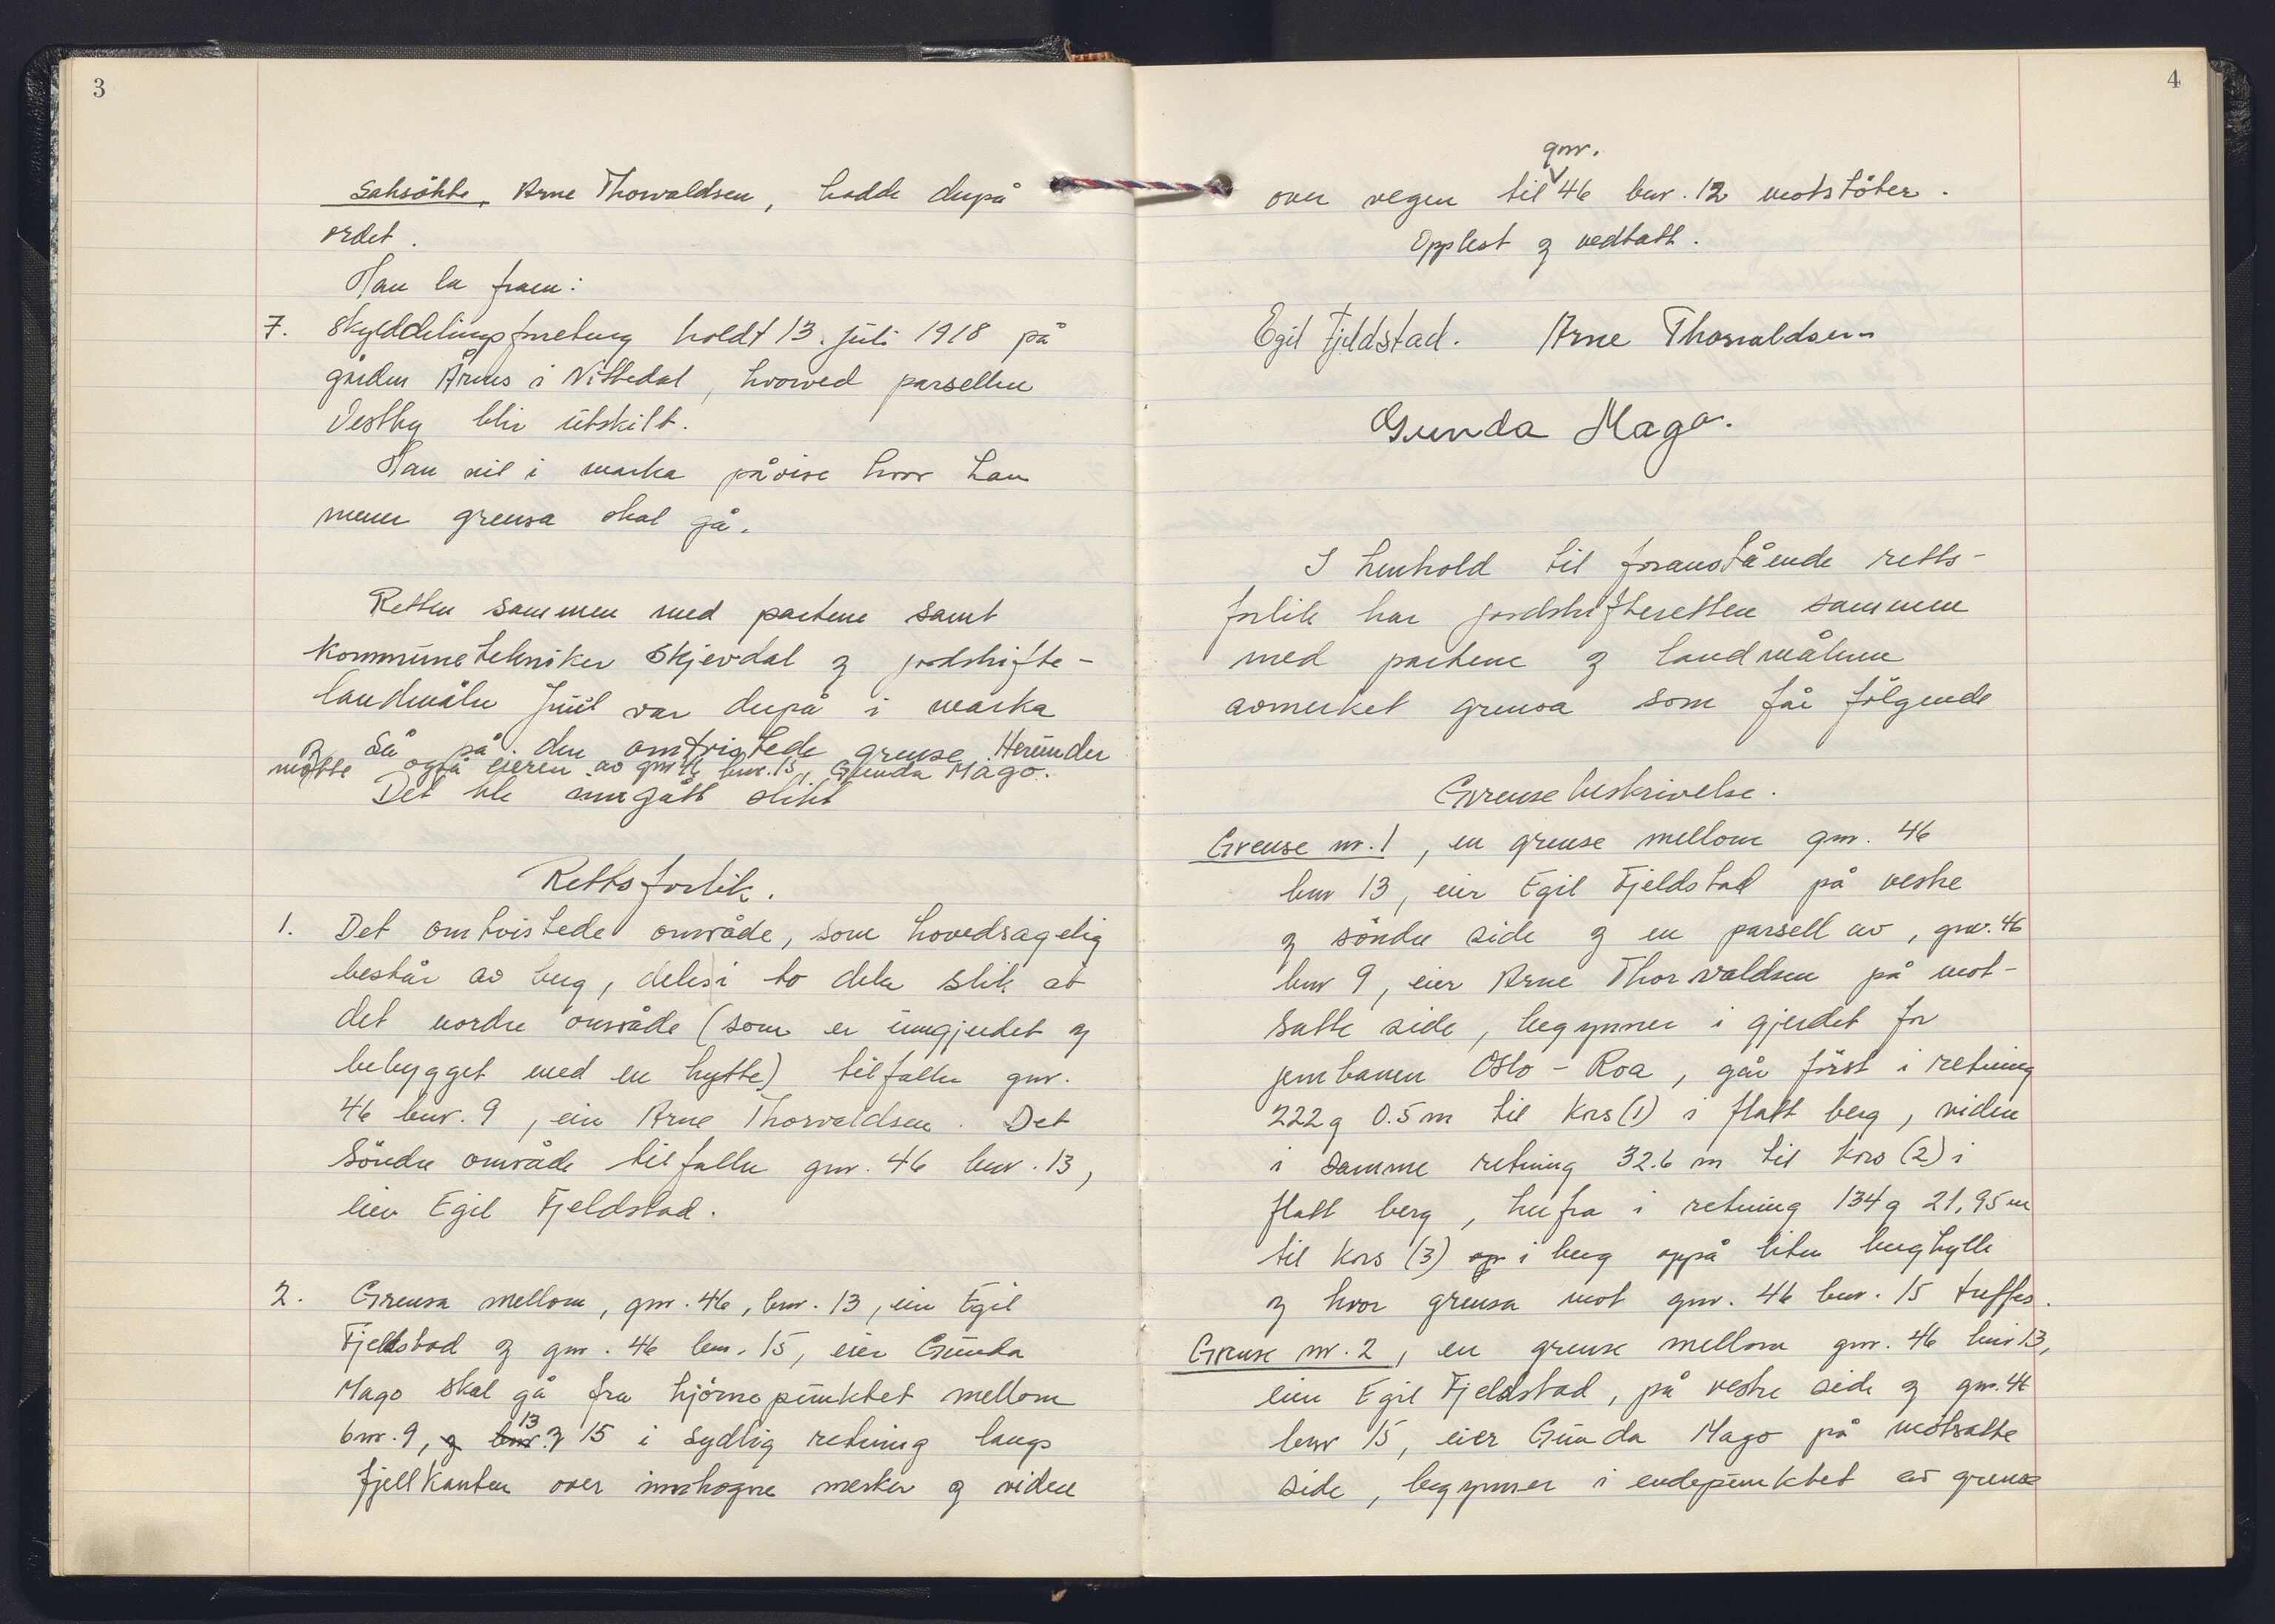 3
Saksökte, Arne Thorvaldsen, hadde derpå
ordet.
Han la fram:
7. Skylddelingsforretning holdt 13. juli 1918 på
gården Årnes i Nittedal, hvorved parsellen
Vestby blir utskilt.
Han vil i marka påvise hvor han
mener grensa skal gå.
Retten sammen med partene samt
kommunetekniker Skjevdal og jordskifte-
landmåler Juul var derpå i marka
og så på den omtvistede grense. Herunder
møtte også eieren av gnr 46 bnr. 15, Gunda Mago.
Det ble inngått slikt
Rettsforlik.
1. Det omtvistede område, som hovedsagelig
består av berg, deles i to deler slik at
det nordre område (som er inngjerdet og
bebygget med en hytte) tilfaller gnr.
46 bnr. 9, eier Arne Thorvaldsen. Det
söndre område tilfaller gnr. 46 bnr. 13,
eier Egil Fjeldstad.
2. Grensa mellom, gnr. 46, bnr. 13, eier Egil
Fjeldstad og gnr. 46 bnr. 15, eier Gunda
Mago skal gå fra hjörnepunktet mellom
13
bnr. 9, og bnr. og 15 i sydlig retning langs
fjellkanten over innhogne merker og videre
4
gnr.
over vegen til 46 bnr. 12 motstöter.
Opplest og vedtatt.
Egil Fjeldstad. Arne Thorvaldsen
Gunda Mago.
I henhold til foranstående retts-
forlik har jordskifteretten sammen
med partene og landmåleren
avmerket grensa som får fölgende
Grensebeskrivelse.
Grense nr. 1, en grense mellom gnr. 46
bnr 13, eier Egil Fjeldstad på vestre
og söndre side og en parsell av, gnr. 46
bnr 9, eier Arne Thorvaldsen på mot-
satte side, begynner i gjerdet for
jernbanen Oslo - Roa, går först i retning
222g 0.5 m til kors (1) i flatt berg, videre
i samme retning 32.6 m til kors (2) i
flatt berg, herfra i retning 134g 21,95 m
til kors (3) op i berg oppå liten berghylle
og hvor grensa mot gnr. 46 bnr. 15 treffes.
Grense nr. 2, en grense mellom gnr. 46 bnr 13,
eier Egil Fjeldstad, på vestre side og gnr. 46
bnr 15, eier Gunda Mago på motsatte
side, begynner i endepunktet av grense